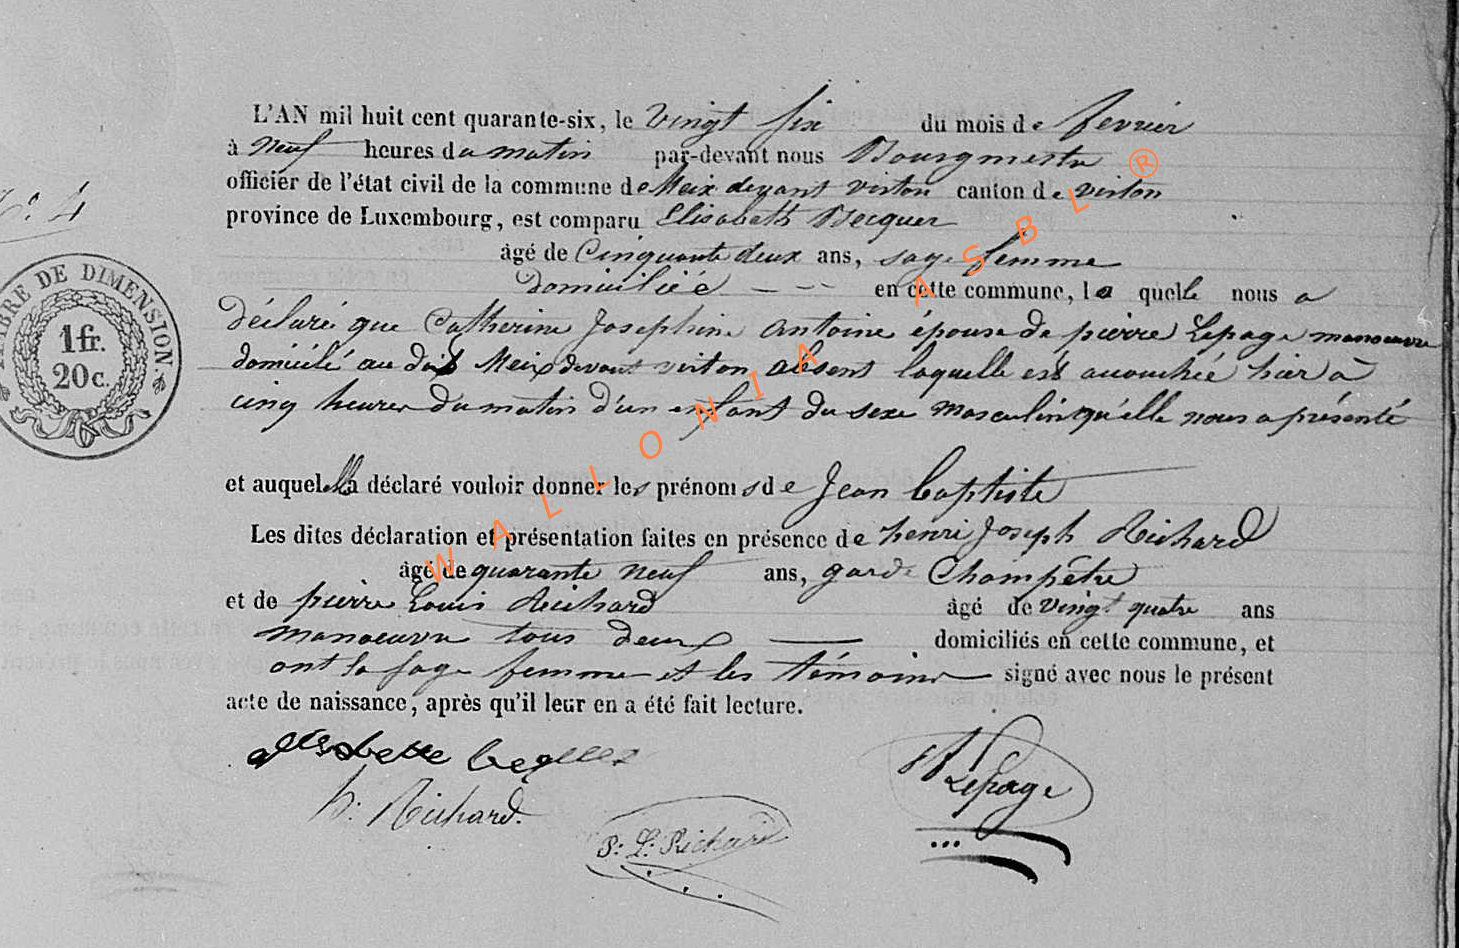 L'AN mil huit cent quarante-six, le Vingt six du mois de fevrier
à Neuf heures du matin par-devant nous Bourgmestre
officier de l'état civil de la commune de Meix devant virton canton de virton
province de Luxembourg, est comparu Elisabeth Becquer
âgé de Cinquante deux ans, sage femme
domiciliée en cette commune, la quelle nous a
déclaré que Catherine Josephine Antoine épouse de pierre Lepage manoeuvre
domicilé au dit Meix devant virton absent laquelle est accouchée hier à
cinq heures du matin d'un enfant du sexe Masculin qu'elle nous a présenté
et auquel elle a déclaré vouloir donner les prénoms de Jean Baptiste
Les dites déclaration et présentation faites en présence de henri Joseph Richard
âgé de quarante neuf ans, garde Champêtre
et de pierre Louis Richard âgé de vingt quatre ans
manoeuvre tous deux domiciliés en cette commune, et
ont la sage femme et les témoins signé avec nous le présent
acte de naissance, après qu'il leur en a été fait lecture.
h: Richard.
P: L: Richard
Lepage
N° 4
TIMBRE DE DIMENSION.
1 fr.
20 c.
WALLONIA ASBL ®